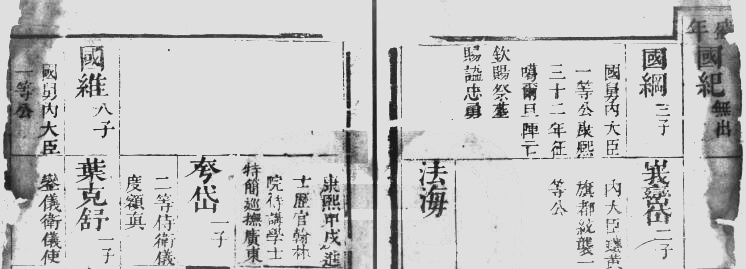 年
國紀 無出
國綱 三子
國舅內大臣
一等公康熙
三十二年征
噶爾旦陣亡
欽賜祭
賜謚忠勇
岱 二子
內大臣鑲黃
旗都統襲一
等公
法海
康熙甲戌進
士歷官翰林
院侍講學士
特簡巡撫廣東
夸岱 一子
二等侍衛儀
度額真
國維 八子
國舅內大臣
一等公
葉克舒 一子
鑾儀衛儀使